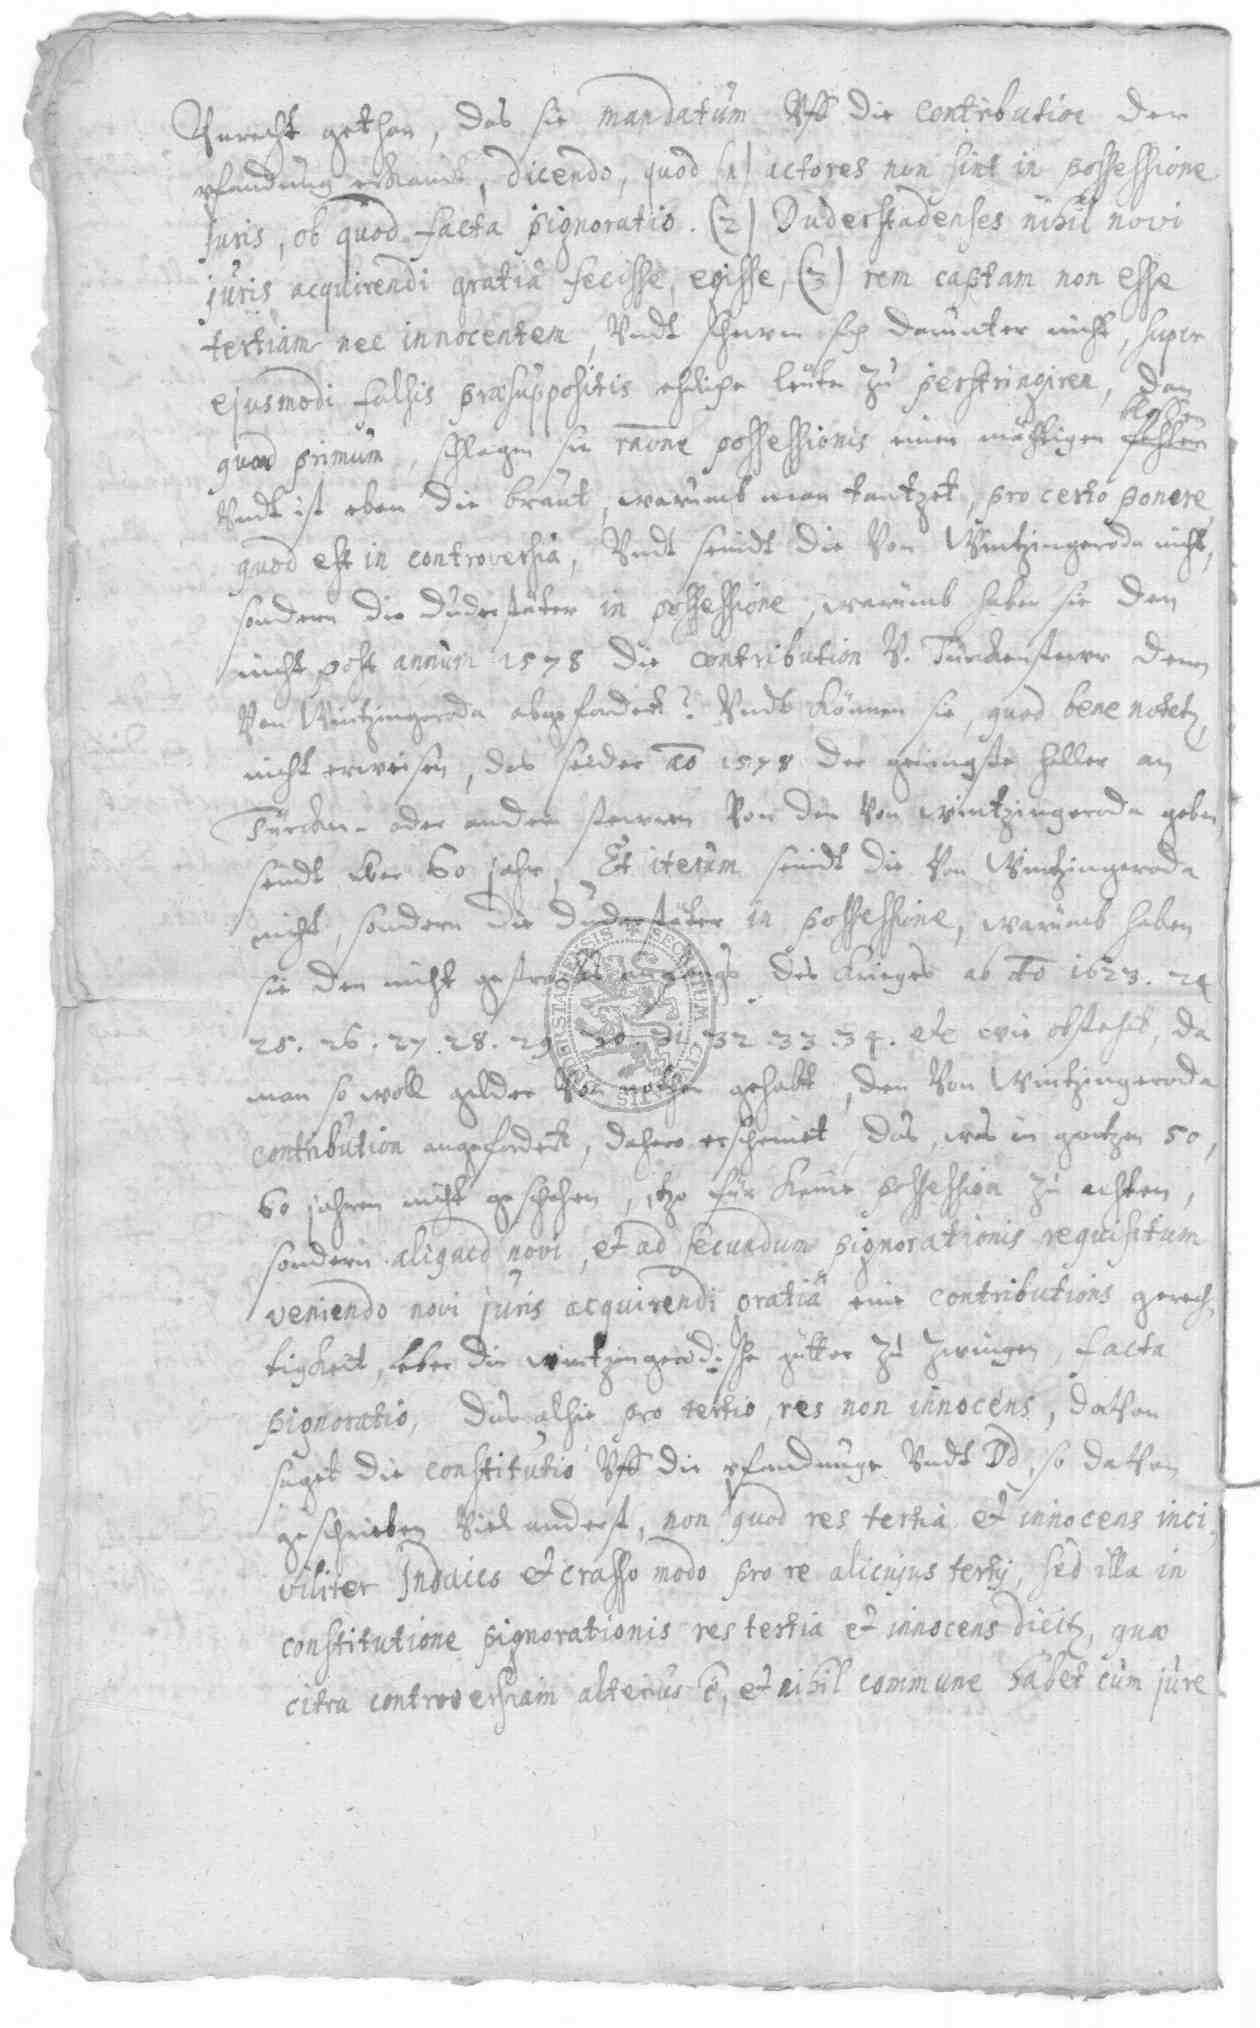 Unrecht gethan, das sie mandatum Uff die Contribution der
pfandung erkand, dicendo, quod (1) actores non sint in possessione
juris, ob quod facta pignoratio. (2) Duderstadenses nihil novi
juris acquirendi gratia fecisse, egisse, (3) rem captam non esse
tertiam nec innocentem, Undt schewen sich darunter nicht, super
ejusmodi falsis præsuppositis ehrliche leute zu perstringiren, dan
quoad primum, schlagen sie raõne possessionis einen mächtigen fehler
blossen
Undt ist eben die braut, warumb man tantzet, pro certo ponere,
quod est in controversia, Undt seindt die Von Wintzingeroda nicht,
sondern die Duderstäter in possessione, warumb haben sie den
nicht post annum 1578 die contribution V. Türckensteur denen
Von Wintzingeroda abgefordert? Undt können sie, quod bene notetz,
nicht erweisen, das seider ao 1578 der geringste heller an
Türcken- oder andern stewren Von den Von Wintzingeroda geben,
seindt über 60 jahr, Et iterum seindt die Von Wintzingeroda
nicht, sondern die Duderstäter in possessione, warumb haben
sie den nicht anfangs des Krieges ab ao 1623. 24
25. 26. 27. 28. 29. 30. 31. 32. 33. 34. etc wie obstehet, da
man so woll gelder Von nöthen gehabt, den Von Wintzingeroda
contribution angefordert, dahero erscheinet, das, was in gantzen 50,
60 jahren nicht geschehen, itzo für keine possession zu achten,
sondern aliquid novi, et ad secundum pignorationis requisitum
veniendo novi juris acquirendi gratia eine contributions gerech-
tigkeit, über die Wintzingerodische gütter zu zwingen, facta
pignoratio, Das alhie pro tertio, res non innocens, daVon
saget die constitutio Uff die pfandunge Undt Dd, so daVon
geschrieben Viel anderst, non quod res tertia et innocens inci-
viliter Judaico et crasso modo pro re alicujus tertij, sed illa in
constitutione pignorationis res tertia et innocens dicitz, quæ
citra controversiam alterius ẽ, et nihil commune habet cum jure